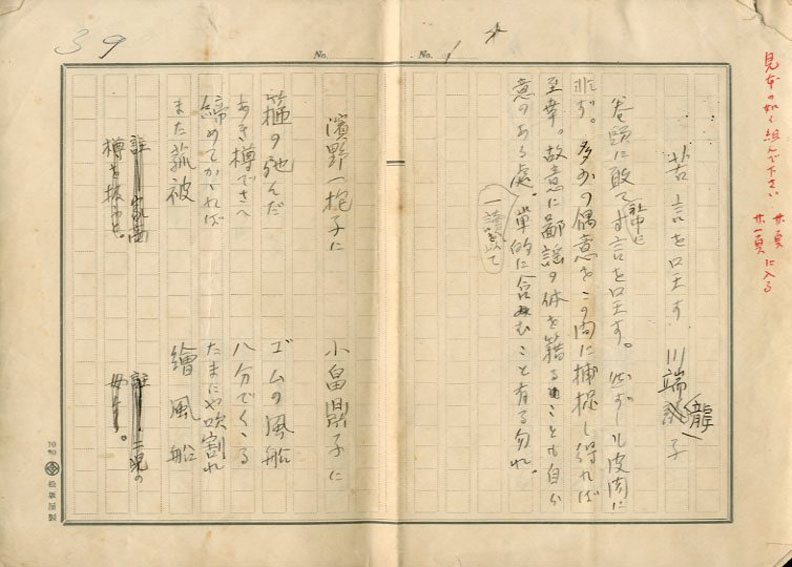 見本の如く組んで下さい
廿頁
廿一頁に入る
No. 1
苦言を呈す 川端龍子
巻頭に敢て社中に言を呈す。必ずしも皮肉に
非ず。多少の偶意をこの内に捕捉し得れば
至幸。故意に鄙謡の体を籍ることも自か
意のある處。単的に含むこと有る勿れ。
一讀以て
39
No.
濱野一梔子に
箍の弛んだ
あき樽でさへ
締めてかゝれば
また菰被
註
樽を
小畠鼎子に
ゴムの風船
八分でくゝる
たまにや吹割れ
繪風船
註 二児の
母